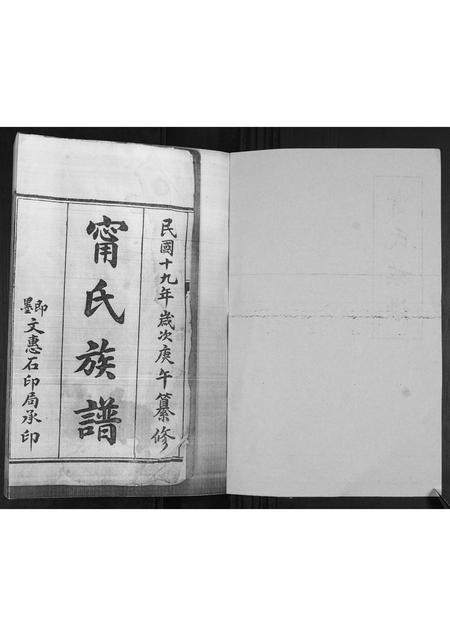 民國十九年歲次庚午纂修
甯氏族譜
即墨文惠石印局承印